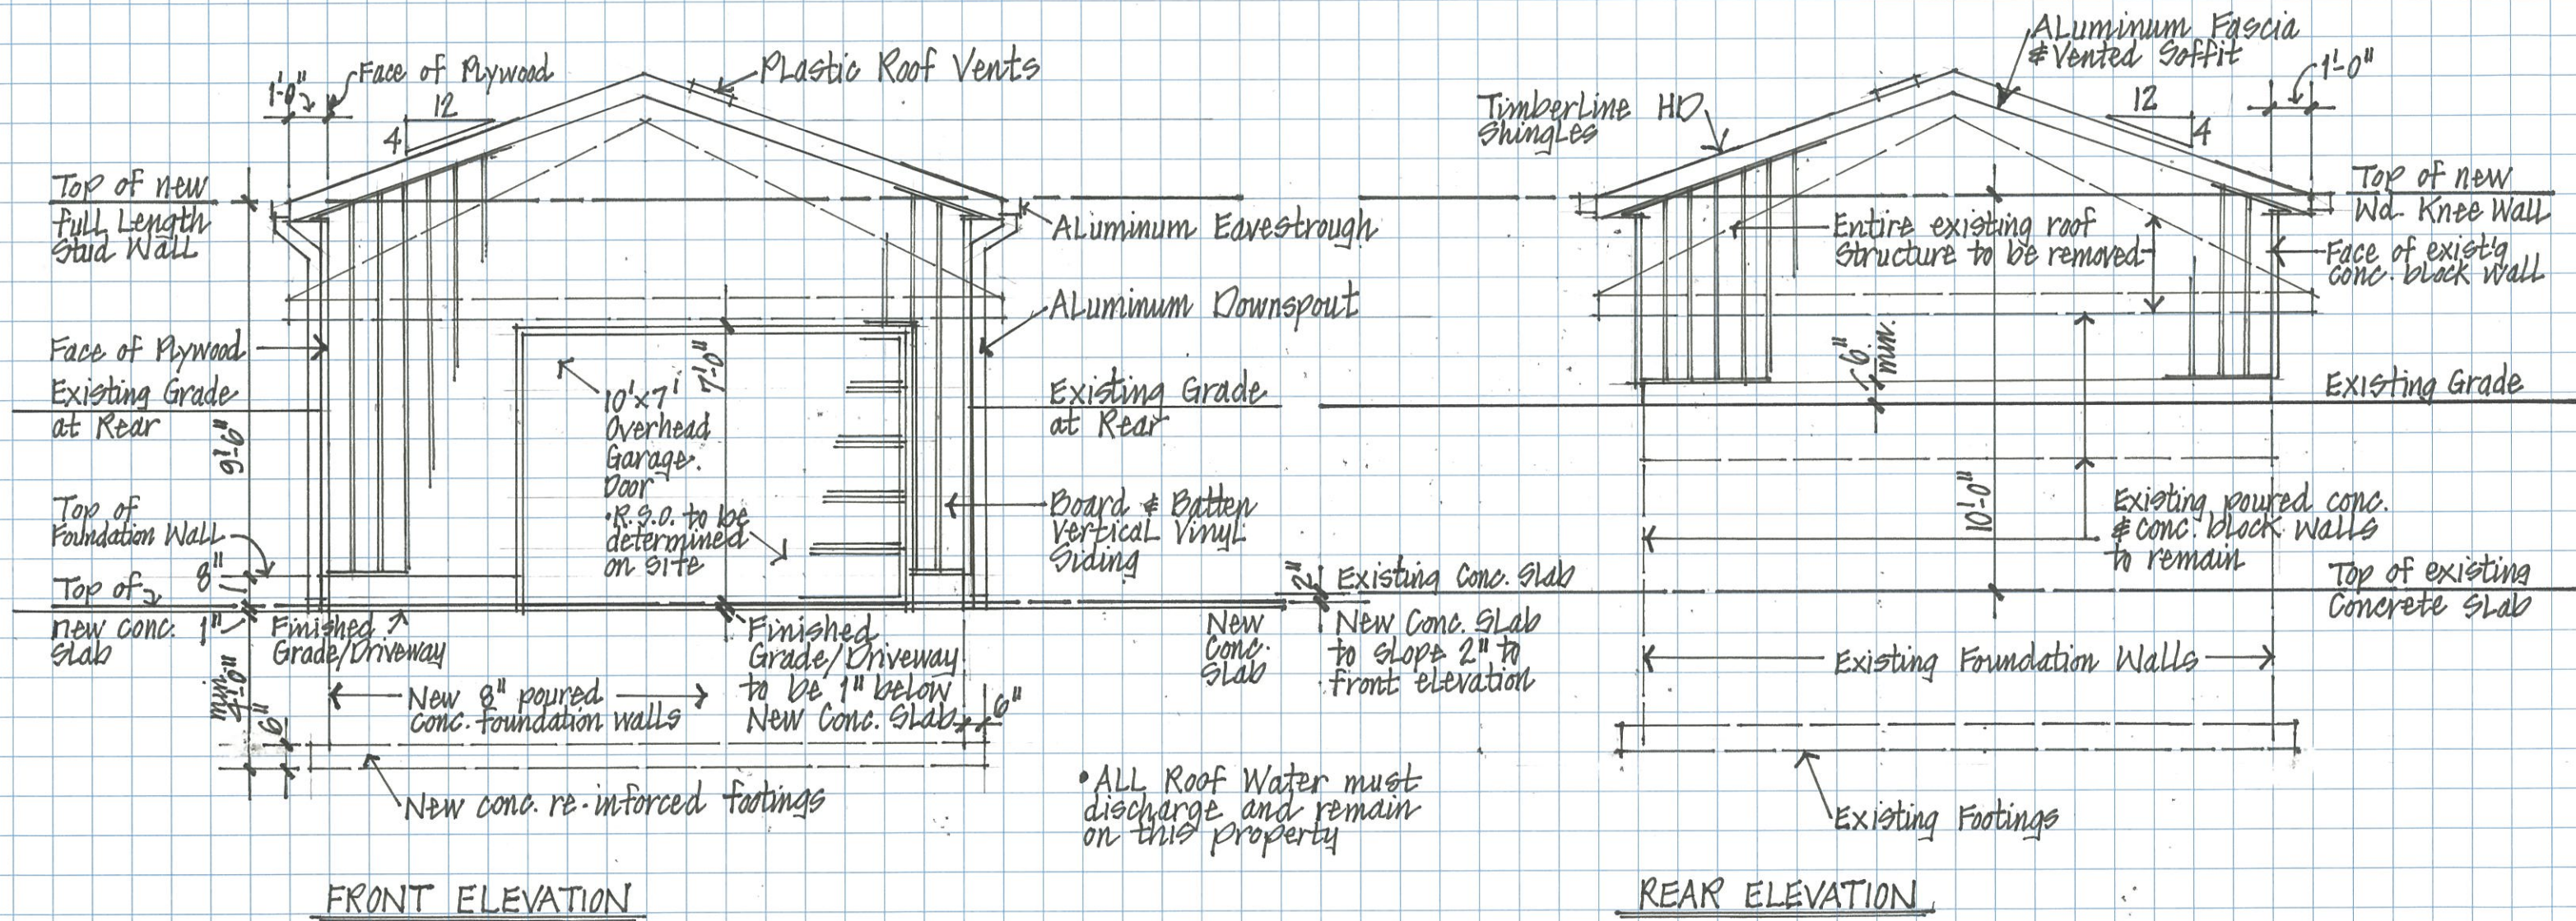 1'-0"
Face of Plywood
12
4
Plastic Roof Vents
Top of new
full Length
Stud Wall
Aluminum Eavestrough
Aluminum Downspout
Face of Plywood
Existing Grade
at Rear
9'-6"
7'-0"
10'x7'
Overhead
Garage.
Door
•R.S.O. to be
determined
on site
Existing Grade
at Rear
Board & Batten
Vertical Vinyl
Siding
Top of
Foundation Wall
8"
Top of
new conc.
Slab
1"
4'-0"
min.
6"
Finished
Grade/Driveway
Finished
Grade/Driveway
to be 1" below
New Conc. Slab
6"
New 8" poured
conc. foundation walls
New conc. re-inforced footings
2"
Existing Conc. Slab
New
Conc.
Slab
New Conc. Slab
to slope 2" to
front elevation
•ALL Roof Water must
discharge and remain
on this property
FRONT ELEVATION
Aluminum Fascia
& Vented Soffit
1'-0"
Timberline HD
Shingles
12
4
Top of new
Wd. Knee Wall
Entire existing roof
Structure to be removed
Face of exist'g
conc. block wall
6"
min.
Existing Grade
10'-0"
Existing poured conc.
& conc. block walls
to remain
Top of existing
Concrete Slab
Existing Foundation Walls
Existing Footings
REAR ELEVATION